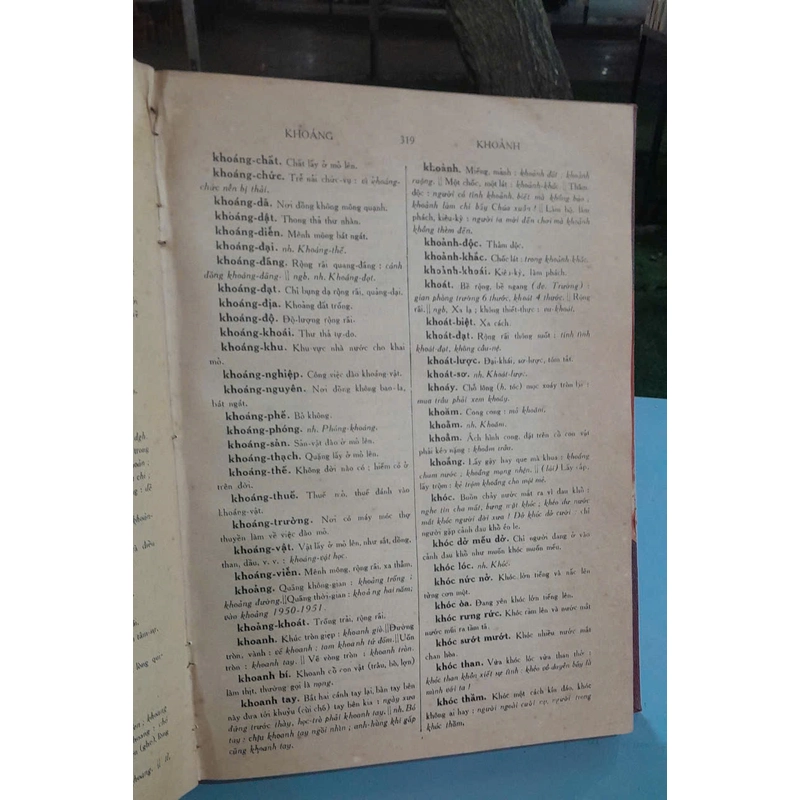 KHOÁNG 319 KHOẢNH
khoáng-chất. Chất lấy ở mỏ lên.
khoáng-chức. Trễ nải chức-vụ : vì khoáng-
chức nên bị thải.
khoáng-dã. Nơi đồng không mông quạnh.
khoáng-dật. Thong thả thư nhàn.
khoáng-diễn. Mênh mông bát ngát.
khoáng-đại. nh. Khoáng-thế.
khoáng-đãng. Rộng rãi quang-đãng : cánh
đồng khoáng-đãng. || ngb. nh. Khoáng-đạt.
khoáng-đạt. Chỉ bụng dạ rộng rãi, quảng-đại.
khoáng-địa. Khoảng đất trống.
khoáng-độ. Độ-lượng rộng rãi.
khoáng-khoái. Thư thả tự-do.
khoáng-khu. Khu-vực nhà nước cho khai
mỏ.
khoáng-nghiệp. Công việc đào khoáng vật.
khoáng-nguyên. Nơi đồng không bao-la,
bát ngát.
khoáng-phế. Bỏ không.
khoáng-phóng. nh. Phóng-khoáng.
khoáng-sản. Sản-vật đào ở mỏ lên.
khoáng-thạch. Quặng lấy ở mỏ lên.
khoáng-thế. Không đời nào có ; hiếm có ở
trên đời.
khoáng-thuế. Thuế mỏ, thuế đánh vào
khoáng-vật.
khoáng-trường. Nơi có máy móc thợ
thuyền làm về việc đào mỏ.
khoáng-vật. Vật lấy ở mỏ lên, như sắt, đồng,
than, dầu, v. v. : khoáng-vật học.
khoáng-viễn. Mênh mông, rộng rãi, xa thẳm.
khoảng. Quãng không-gian : khoảng trống ;
khoảng đường.||Quãng thời-gian : khoảng hai năm;
vào khoảng 1950-1951.
khoảng-khoát. Trống trải, rộng rãi.
khoanh. Khúc tròn giẹp : khoanh giò.||Đường
tròn, vành : vẽ khoanh : tam khoanh tứ đốm.||Uốn
tròn : khoanh tay. || Vẽ vòng tròn : khoanh tròn.
khoanh bí. Khoanh cổ con vật (trâu, bò, lợn)
làm thịt, thường gọi là nọng.
khoanh tay. Bắt hai cánh tay lại, bàn tay liền
này đưa tới khuỷu (cùi chỏ) tay bên kia : ngày xưa
đứng trước thầy, học-trò phải khoanh tay. || nh. Bó
tay : chịu khoanh tay ngồi nhìn , anh-hùng khi gấp
cũng khoanh tay.
khoảnh. Miếng, mảnh : khoảnh đất ; khoảnh
ruộng. || Một chốc, một lát : khoảnh-khắc. || Thâm
độc : người có tính khoảnh, biết mà không bảo ;
khoảnh làm chi bấy Chúa xuân ! || Làm bộ, làm
phách, kiêu-kỳ : người ta mời đến chơi mà khoảnh
không thèm đến.
khoảnh-độc. Thâm độc.
khoảnh-khắc. Chốc lát : trong khoảnh-khắc.
khoảnh-khoái. Kiêu-kỳ, làm phách.
khoát. Bề rộng, bề ngang ( đv. Trường) :
gian phòng trường 6 thước, khoát 4 thước. || Rộng
rãi. || ngb. Xa lạ ; không thiết-thực : vu-khoát.
khoát-biệt. Xa cách.
khoát-đạt. Rộng rãi thông suốt : tính tình
khoát-đạt, không câu-nệ.
khoát-lược. Đại-khái, sơ-lược, tóm tắt.
khoát-sơ. nh. Khoát-lược.
khoáy. Chỗ lông (h. tóc) mọc xoáy tròn lại :
mua trâu phải xem khoáy.
khoăm. Cong cong : mỏ khoăm.
khoằm. nh. Khoăm.
khoẳm. Ách hình cong, đặt trên cổ con vật
phải kéo nặng : khoẳm trâu.
khoắng. Lấy gậy hay que mà khoa : khoắng
chum nước ; khoắng mạng nhện. || (lái) Lấy cắp,
lấy trộm : kẻ trộm khoắng cho một mẻ.
khóc. Buồn chảy nước mắt ra vì đau khổ :
nghe tin cha mất, bưng mặt khóc ; khéo dư nước
mắt khóc người đời xưa ! Dở khóc dở cười : chỉ
người gặp cảnh đau khổ éo le.
khóc dở mếu dở. Chỉ người đang ở vào
cảnh đau khổ như muốn khóc muốn mếu.
khóc lóc. nh. Khóc.
khóc nức nở. Khóc lớn tiếng và nấc lên
từng cơn một.
khóc òa. Đang yên khóc lớn tiếng lên.
khóc rưng rức. Khóc rầm lên và nước mắt
nước mũi ra tầm tã.
khóc sướt mướt. Khóc nhiều nước mắt
chan hòa.
khóc than. Vừa khóc lóc vừa than thở :
khóc than khôn xiết sự tình : khéo vô duyên bấy là
mình với ta !
khóc thầm. Khóc một cách kín đáo, khóc
không ai hay : người ngoài cười nụ, người trong
khóc thầm.